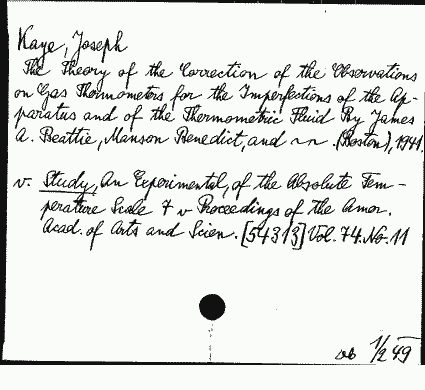 Kaye, Joseph
The Theory of the Correction of the Observations
on Gas Thermometers for the Imperfections of the Ap-
paratus and of the Thermometric Fluid By James
A. Beattie, Manson Benedict, and ~ ~ . (Boston), 1941.
v. Study, An Experimental, of the Absolute Tem-
perature Scale 7 v Proceedings of the Amer.
Acad. of Arts and Scien. [54313] Vol. 74. No. 11
1/2 49